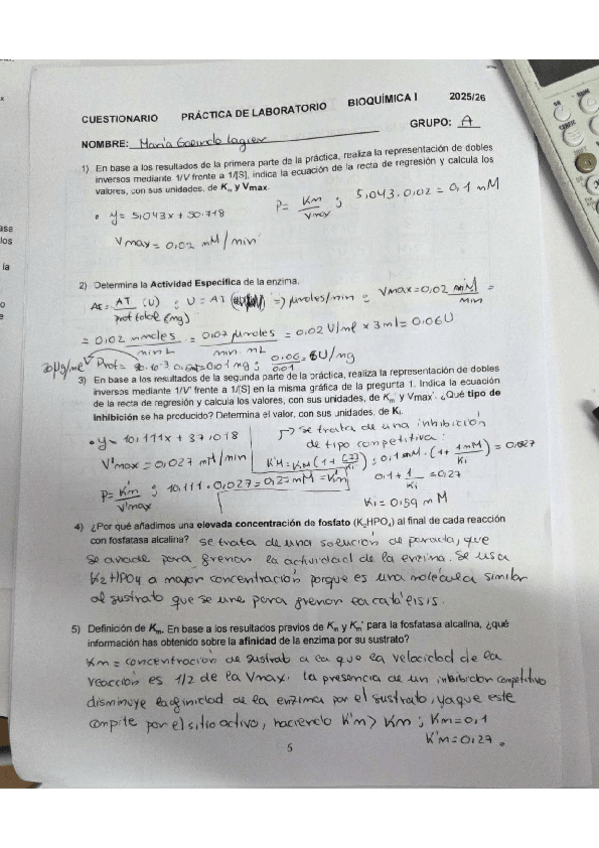 CUESTIONARIO PRÁCTICA DE LABORATORIO BIOQUÍMICA I 2025/26
NOMBRE: María GRUPO: A
1) En base a los resultados de la primera parte de la práctica, realiza la representación de dobles
inversos mediante 1/V frente a 1/[S], indica la ecuación de la recta de regresión y calcula los
valores, con sus unidades, de Km y Vmax.
• y = 5,043x + 50.718 P = Km/Vmax ; 5,043 · 0,02 = 0,1 mM
Vmax = 0,02 mM/min
2) Determina la Actividad Específica de la enzima.
AE = AT (U) / Prot total (mg) ; U = AT => μmoles/min = Vmax = 0,02 mM/min =
= 0,02 mmoles / min L = 0,02 μmoles / min. mL = 0,02 U/ml × 3 ml = 0,06 U
20 μg/ml Prot = 0,01 mg ; 0,06 / 0,01 = 6 U/mg
3) En base a los resultados de la segunda parte de la práctica, realiza la representación de dobles
inversos mediante 1/V' frente a 1/[S] en la misma gráfica de la pregunta 1. Indica la ecuación
de la recta de regresión y calcula los valores, con sus unidades, de Km' y Vmax'. ¿Qué tipo de
inhibición se ha producido? Determina el valor, con sus unidades, de Ki.
• y = 10,111x + 37,018 se trata de una inhibición
de tipo competitiva:
V'max = 0,027 mM/min K'M = KM (1 + [I]/Ki) = 0,1 mM · (1 + 1 mM/Ki) = 0,027
P = K'm/V'max ; 10,111 · 0,027 = 0,27 mM = K'm 0,1 + 1/Ki = 0,27
Ki = 0,59 mM
4) ¿Por qué añadimos una elevada concentración de fosfato (K2HPO4) al final de cada reacción
con fosfatasa alcalina? Se trata de una solución de parada, que
se añade para frenar la actividad de la enzima. Se usa
K2HPO4 a mayor concentración porque es una molécula similar
al sustrato que se une para frenar la catálisis.
5) Definición de Km. En base a los resultados previos de Km y Km' para la fosfatasa alcalina, ¿qué
información has obtenido sobre la afinidad de la enzima por su sustrato?
Km = concentración de sustrato a la que la velocidad de la
reacción es 1/2 de la Vmax. la presencia de un inhibidor competitivo
disminuye la afinidad de la enzima por el sustrato, ya que este
compite por el sitio activo, haciendo K'm > Km ; Km = 0,1
K'm = 0,27.
5